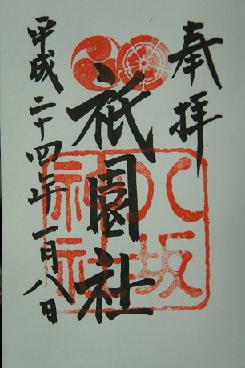 奉拝
八坂神社
祇園社
平成二十四年一月八日